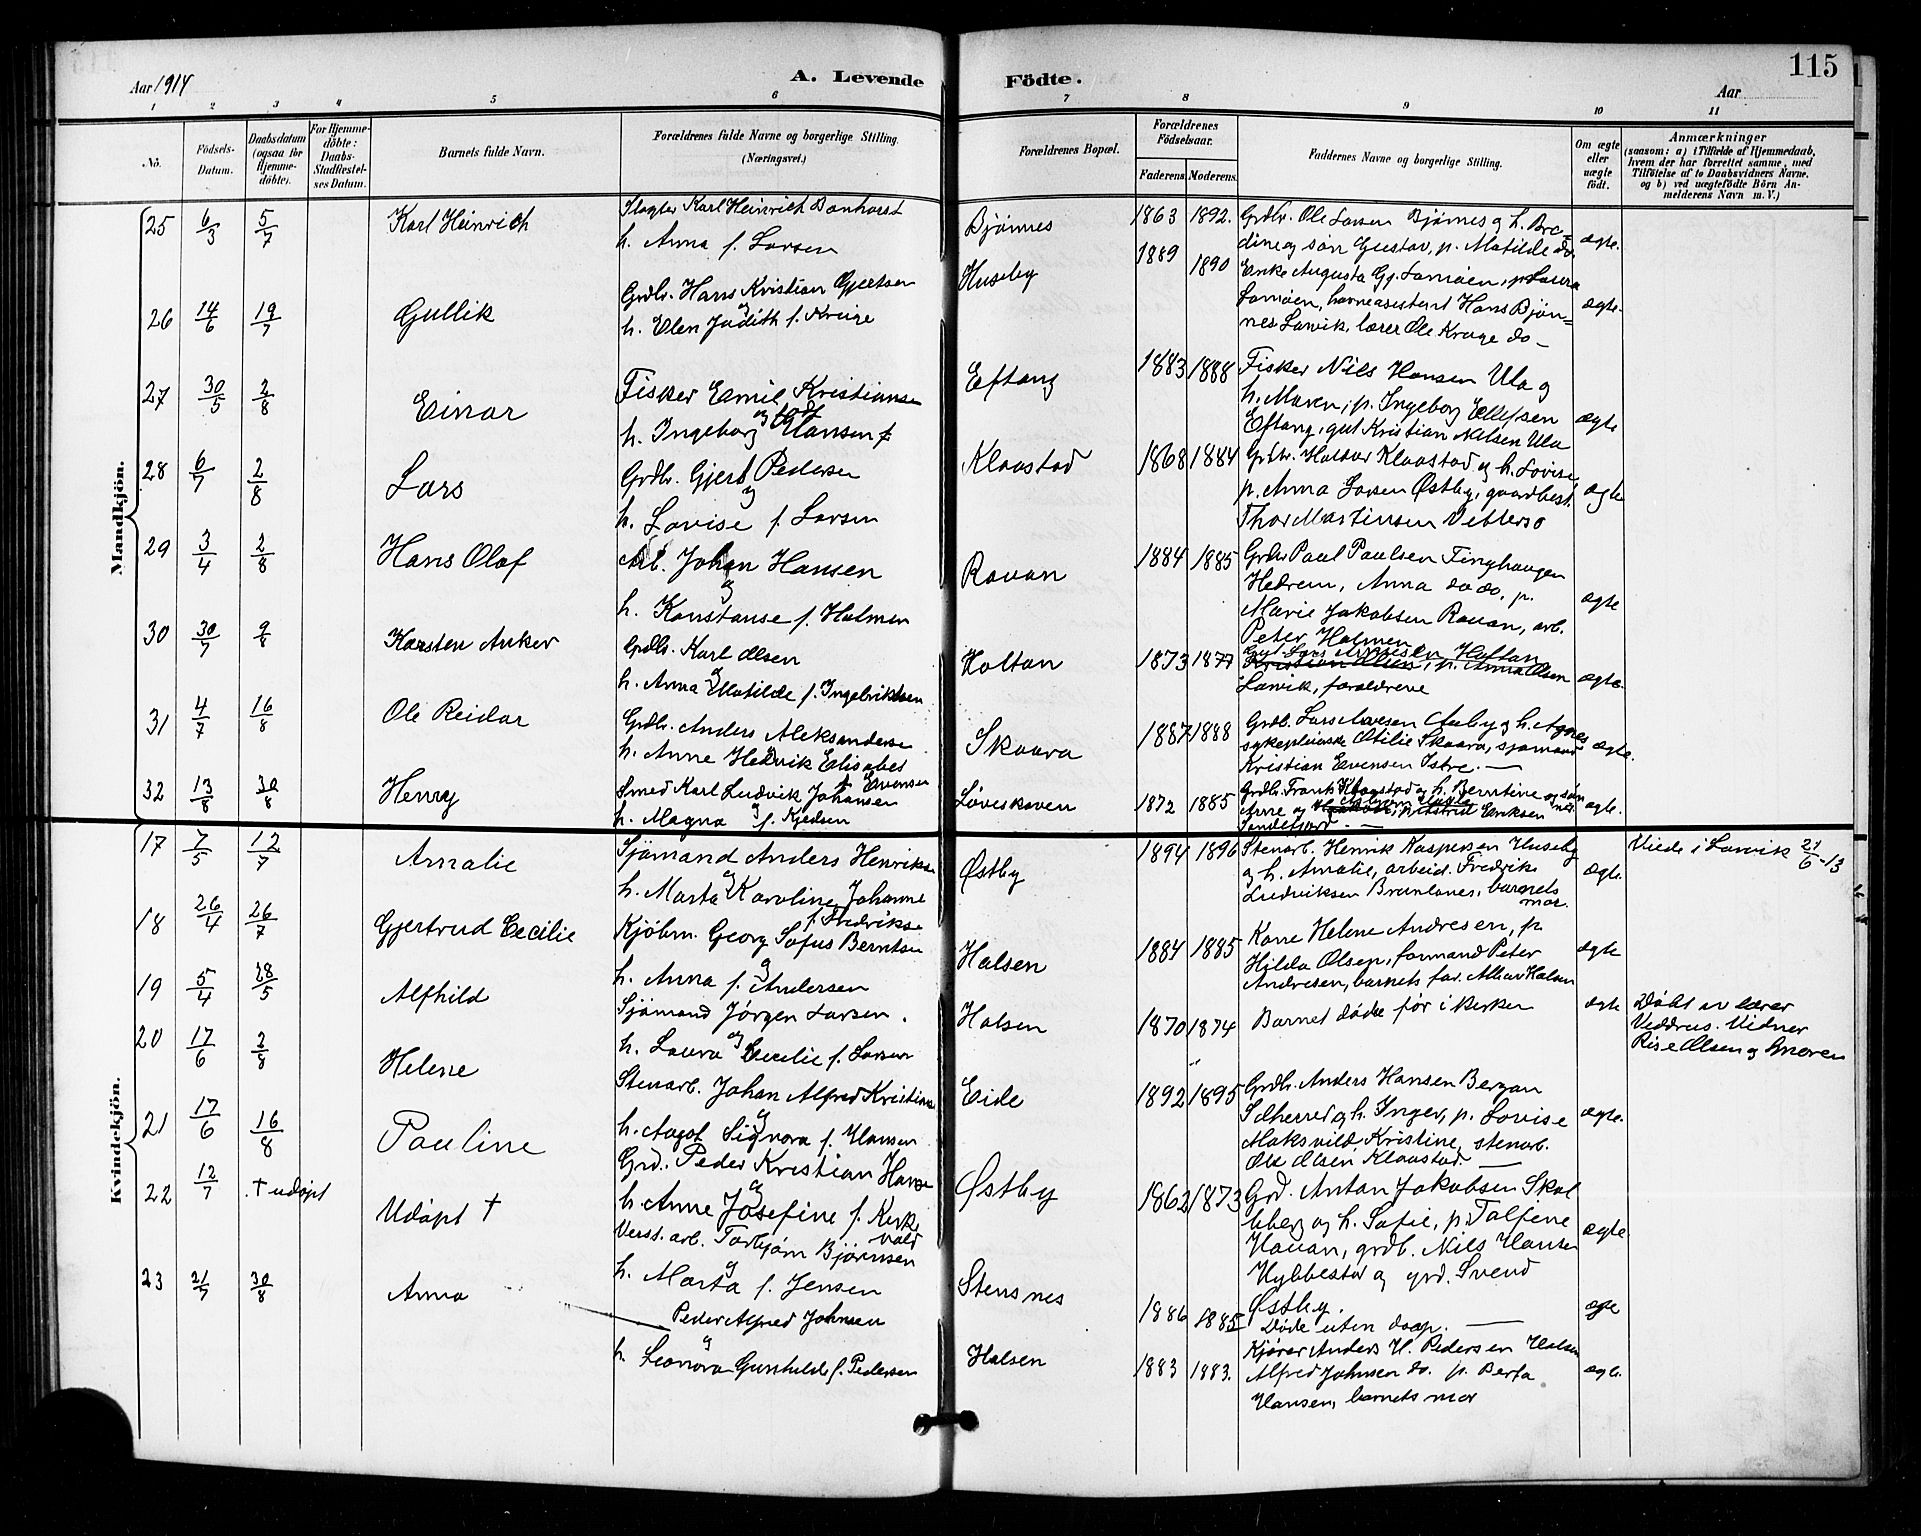 115
Aar 1914
A. Levende Födte.
Aar
1 2 3 4 5 6 7 8 9 10 11
No.
Födsels-
Datum.
Daabsdatum
(ogsaa for
Hjemme-
döbte).
For Hjemme-
döbte:
Daabs-
Stadfestel-
ses Datum.
Barnets fulde Navn.
Forældrenes fulde Navne og borgerlige Stilling.
(Næringsvei.)
Forældrenes Bopæl.
Forældrenes
Födselsaar.
Faderens. Moderens.
Faddernes Navne og borgerlige Stilling.
Om ægte
eller
uægte
födt.
Anmærkninger
(saasom: a) i Tilfælde af Hjemmedaab,
hvem der har forrettet samme, med
Tilföielse af to Daabsvidners Navne.
og b) ved uægtefödte Börn An-
melderens Navn m. V.)
Mandkjön.
25 6/3 5/7 Karl Heinrich
Slagter Karl Heinrich Bonhorst
h. Anna f. Larsen
Bjønnes 1863 1892.
Grdbr. Ole Larsen Bjønnes og h. Bre-
dine og søn Gustav, p. Matilde do.
ægte.
26 14/6 19/7 Gullik
Grdbr. Hans Kristian Gjertsen
og
h. Elen Judith f. Kruge
Huseby 1889 1890
Enke Augusta Gg. Lamøen, p. Laura
Lamøen, havneassistent Hans Bjøn-
nes Larvik, lærer Ole Kruge do
ægte.
27 30/5 2/8 Einar
Fisker Emil Kristiansen
og
h. Ingeborg Hansen
Eftang 1883 1888
Fisker Nils Hansen Ula og
h. Maren, p. Ingeborg Ellefsen
Eftang, gut Kristian Nilsen Ula
ægte
28 6/7 2/8 Lars
Grdbr. Gjert Pedersen
og
h. Lovise f. Larsen
Klaastad 1868 1884
Grdbr. Halvor Klaastad og h. Lovise,
p. Anna Larsen Østby, gaardbest.
Thor Martinsen Vittersø
ægte
29 3/4 2/8 Hans Olaf
Arb. Johan Hansen
og
h. Konstanse f. Holmen
Rauan 1884 1885
Grdbr Paul Paulsen Tinghaugen
Hedrum, Anna do do, p.
Marie Jakobsen Rauan, arb.
Peter Holmen
ægte
30 30/7 9/8 Karsten Anker
Grdbr. Karl Olsen
og
h. Anna Matilde f. Ingebriktsen
Holtan 1873 1877
Kristian Olsen, p. Anna Olsen
Larvik, forældrene
ægte.
31 4/7 16/8 Ole Reidar
Grdbr. Anders Aleksandersen
og
h. Anne Hedvik Elisabet
f. Evensen
Skaara 1887 1888
Grdb. Lars Aaresen Aaby og h. Agnes
sykepleierske Otilie Skaara, sjømand
Kristian Evensen Istre.
ægte.
32 13/8 30/8 Henry
Smed Karl Ludvik Johansen
og
h. Magna f. Kjeldsen
Løveskaven 1872 1885
Grdb. Frank Klaastad og h. Berntine og søn
Arne og Astrid Eriksen
Sandefjord
ægte.
Kvindekjön.
17 7/5 12/7 Amalie
Sjømand Anders Henriksen
og
h. Marta Karoline Johanne
f. Fredriksen
Østby 1894 1896
Stenarb. Henrik Kaspersen Huseby
og h. Amalie, arbeid. Fredrik
Ludviksen Brunlanes, barnets
mor.
ægte.
Viede i Larvik 21/6-13
18 26/4 26/7 Gjertrud Cecilie
Kjøbm. Georg Sofus Berntsen
og
h. Anna f. Andersen
Halsen 1884 1885
Kone Helene Andresen, p.
Hilda Olsen, formand Peter
Andresen, barnets far. Alle av Halsen
ægte
19 5/4 28/5 Alfhild
Sjømand Jørgen Larsen
og
h. Laura Cecilie f. Larsen
Halsen 1870 1874
Barnet døde før i kirken
ægte
Døbt av lærer
Veddrus. Vidner
Risø Olsen og moren
20 17/6 2/8 Helene
Stenarb. Johan Alfred Kristiansen
og
h. Aagot Signora f. Hansen
Eide 1892 1895
Grdbr. Anders Hansen Bergan
Sdherred og h. Inger, p. Lovise
Maksvild Kristine, stenarb.
Ole Olsen Klaastad.
ægte.
21 17/6 16/8 Pauline
Grd. Peder Kristian Hansen
og
h. Anne Josefine f. Kirke
vold
Østby 1862 1873
Grd. Anton Jakobsen Skal
leberg og h. Sofie, p. Talfine
Hauan, grdb. Nils Hansen
Hybbestad og grd. Svend
Østby.
ægte
22 12/7 † udøpt Udøpt †
Verst. arb. Torbjørn Bjørnsen
og
h. Marta f. Jensen
Stensnes 1886 1885
Døde uten daap.
ægte
23 21/7 30/8 Anna
Peder Alfred Johnsen
og
h. Leonora Gunhilde f. Pedersen
Halsen 1883 1883.
Kjører Anders H. Pedersen Halsen
Alfred Johnsen do. p. Berta
Hansen, barnets mor
ægte.